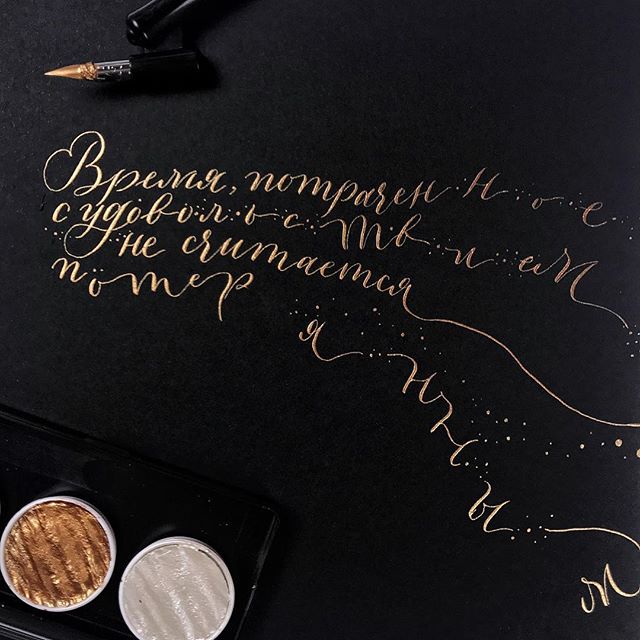 Время, потраченное
с удовольствием
не считается
потерянным